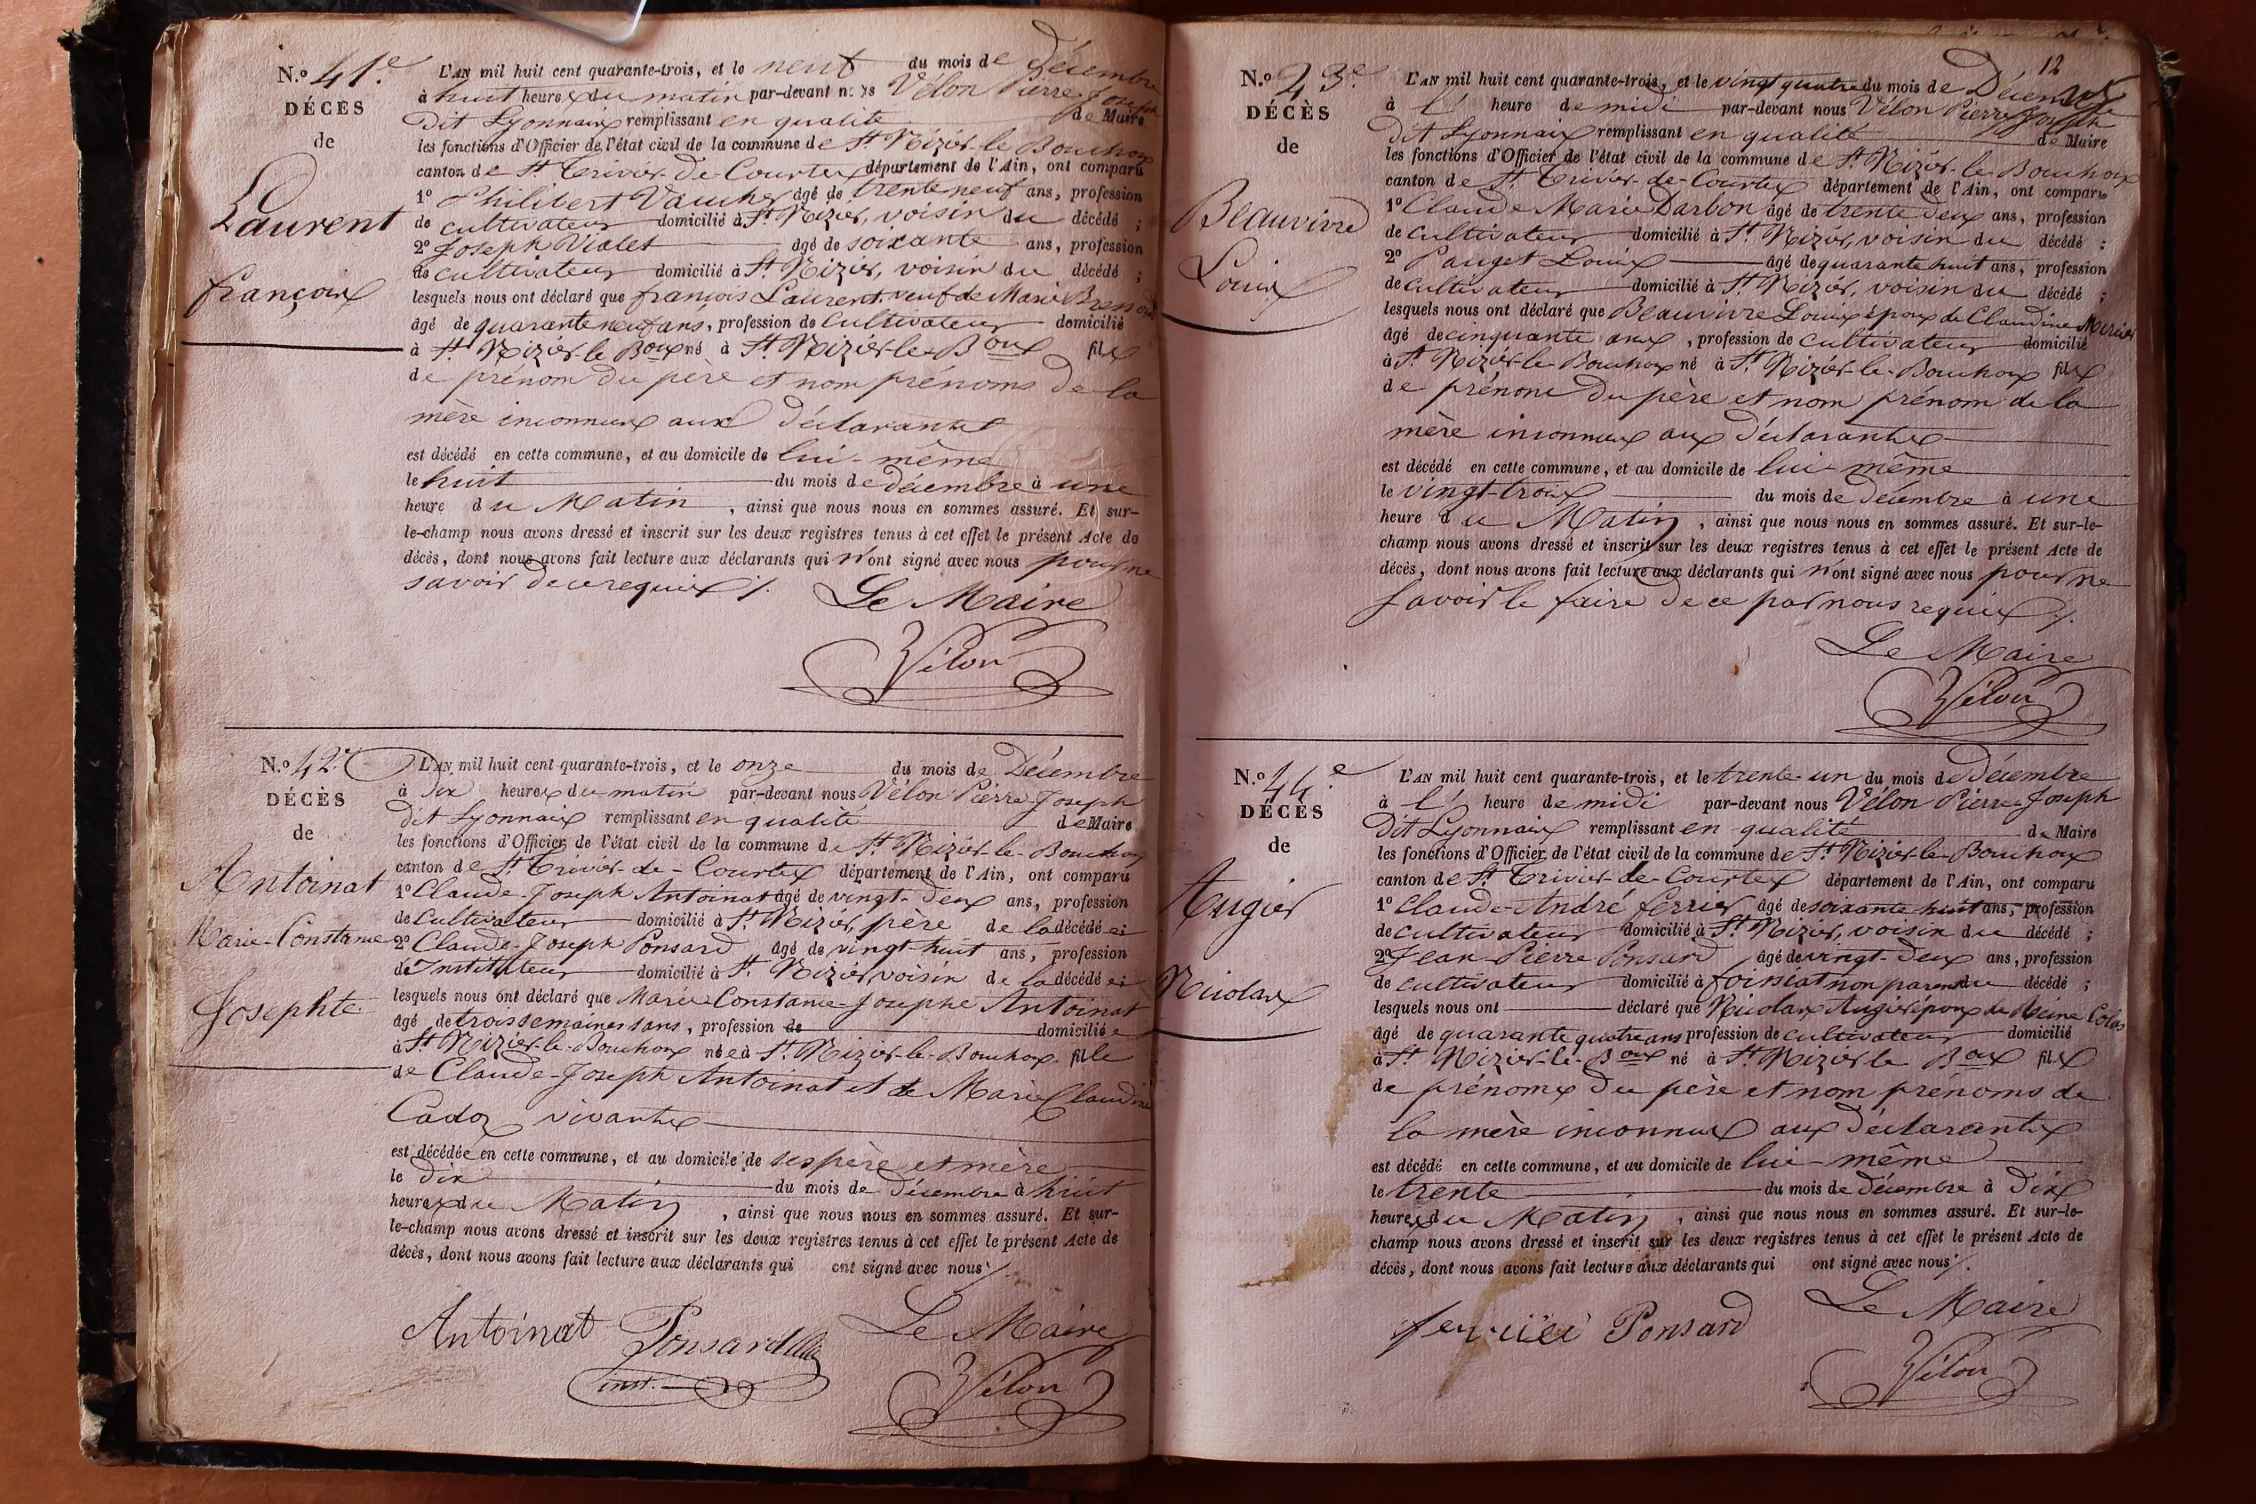 N.º 41.e
DÉCÈS
de
Laurent
françois
L'AN mil huit cent quarante-trois, et le neuf du mois de Décembre
à huit heures du matin par-devant nous Vélon Pierre Joseph
dit Lyonnais remplissant en qualité de Maire
les fonctions d'Officier de l'état civil de la commune de St. Nizier-le-Bouchoux
canton de St. Trivier-de-Courtes département de l'Ain, ont comparu
1º Philibert Vaucher âgé de trente neuf ans, profession
de cultivateur domicilié à St. Nizier, voisin du décédé ;
2º Joseph Violet âgé de soixante ans, profession
de cultivateur domicilié à St. Nizier, voisin du décédé ;
lesquels nous ont déclaré que françois Laurent veuf de Marie
âgé de quarante neuf ans, profession de cultivateur domicilié
à St. Nizier-le-Boux né à St. Nizier-le-Boux fils
de prénom du père et nom prénoms de la
mère inconnus aux déclarants
est décédé en cette commune, et au domicile de lui-même
le huit du mois de décembre à une
heure du Matin, ainsi que nous nous en sommes assuré. Et sur-
le-champ nous avons dressé et inscrit sur les deux registres tenus à cet effet le présent Acte de
décès, dont nous avons fait lecture aux déclarants qui n'ont signé avec nous pour ne
savoir de ce requis /.
Le Maire
Vélon
N.º 42.e
DÉCÈS
de
Antoinat
Marie-Constance
Josephte
L'AN mil huit cent quarante-trois, et le onze du mois de Décembre
à Dix heures du matin par-devant nous Vélon Pierre-Joseph
dit Lyonnais remplissant en qualité de Maire
les fonctions d'Officier de l'état civil de la commune de St. Nizier-le-Bouchoux
canton de St. Trivier-de-Courtes département de l'Ain, ont comparu
1º Claude-Joseph Antoinat âgé de vingt-deux ans, profession
de cultivateur domicilié à St. Nizier, père de la décédée
2º Claude-Joseph Ponsard âgé de vingt-huit ans, profession
de Instituteur domicilié à St. Nizier, voisin de la décédée
lesquels nous ont déclaré que Marie-Constance-Josephe Antoinat
âgé de trois semaines sans, profession de domiciliée
à St. Nizier-le-Bouchoux née à St. Nizier-le-Bouchoux fille
de Claude-Joseph Antoinat et de Marie Claudine
Cadoz vivants
est décédée en cette commune, et au domicile de ses père et mère
le dix du mois de décembre à huit
heures du Matin, ainsi que nous nous en sommes assuré. Et sur-
le-champ nous avons dressé et inscrit sur les deux registres tenus à cet effet le présent Acte de
décès, dont nous avons fait lecture aux déclarants qui ont signé avec nous /.
Antoinat Ponsard
inst.
Le Maire
Vélon
12
N.º 43.e
DÉCÈS
de
Beauvivre
Louis
L'AN mil huit cent quarante-trois, et le vingt quatre du mois de Décembre
à l' heure de midi par-devant nous Vélon Pierre Joseph
dit Lyonnais remplissant en qualité de Maire
les fonctions d'Officier de l'état civil de la commune de St. Nizier-le-Bouchoux
canton de St. Trivier-de-Courtes département de l'Ain, ont comparu
1º Claude Marie Darbon âgé de trente deux ans, profession
de cultivateur domicilié à St. Nizier, voisin du décédé ;
2º Pauget Louis âgé de quarante huit ans, profession
de cultivateur domicilié à St. Nizier, voisin du décédé ;
lesquels nous ont déclaré que Beauvivre Louis époux de Claudine
âgé de cinquante ans, profession de cultivateur domicilié
à St. Nizier-le-Bouchoux né à St. Nizier-le-Bouchoux fils
de prénom du père et nom prénom de la
mère inconnus aux déclarants
est décédé en cette commune, et au domicile de lui-même
le vingt-trois du mois de décembre à une
heure du Matin, ainsi que nous nous en sommes assuré. Et sur-le-
champ nous avons dressé et inscrit sur les deux registres tenus à cet effet le présent Acte de
décès, dont nous avons fait lecture aux déclarants qui n'ont signé avec nous pour ne
savoir le faire de ce par nous requis /.
Le Maire
Vélon
N.º 44.e
DÉCÈS
de
Augier
Nicolas
L'AN mil huit cent quarante-trois, et le trente-un du mois de Décembre
à l' heure de midi par-devant nous Vélon Pierre Joseph
dit Lyonnais remplissant en qualité de Maire
les fonctions d'Officier de l'état civil de la commune de St. Nizier-le-Bouchoux
canton de St. Trivier-de-Courtes département de l'Ain, ont comparu
1º Claude-André ferrier âgé de soixante huit ans, profession
de cultivateur domicilié à St. Nizier, voisin du décédé ;
2º Jean-Pierre Ponsard âgé de vingt-deux ans, profession
de cultivateur domicilié à foissiat non parent du décédé ;
lesquels nous ont déclaré que Nicolas Augier époux de Reine Colas
âgé de quarante quatre ans profession de cultivateur domicilié
à St. Nizier-le-Boux né à St. Nizier-le Boux fils
de prénoms du père et nom prénoms de
la mère inconnus aux déclarants
est décédé en cette commune, et au domicile de lui-même
le trente du mois de décembre à dix
heures du Matin, ainsi que nous nous en sommes assuré. Et sur-le-
champ nous avons dressé et inscrit sur les deux registres tenus à cet effet le présent Acte de
décès, dont nous avons fait lecture aux déclarants qui ont signé avec nous /.
Ponsard
Le Maire
Vélon